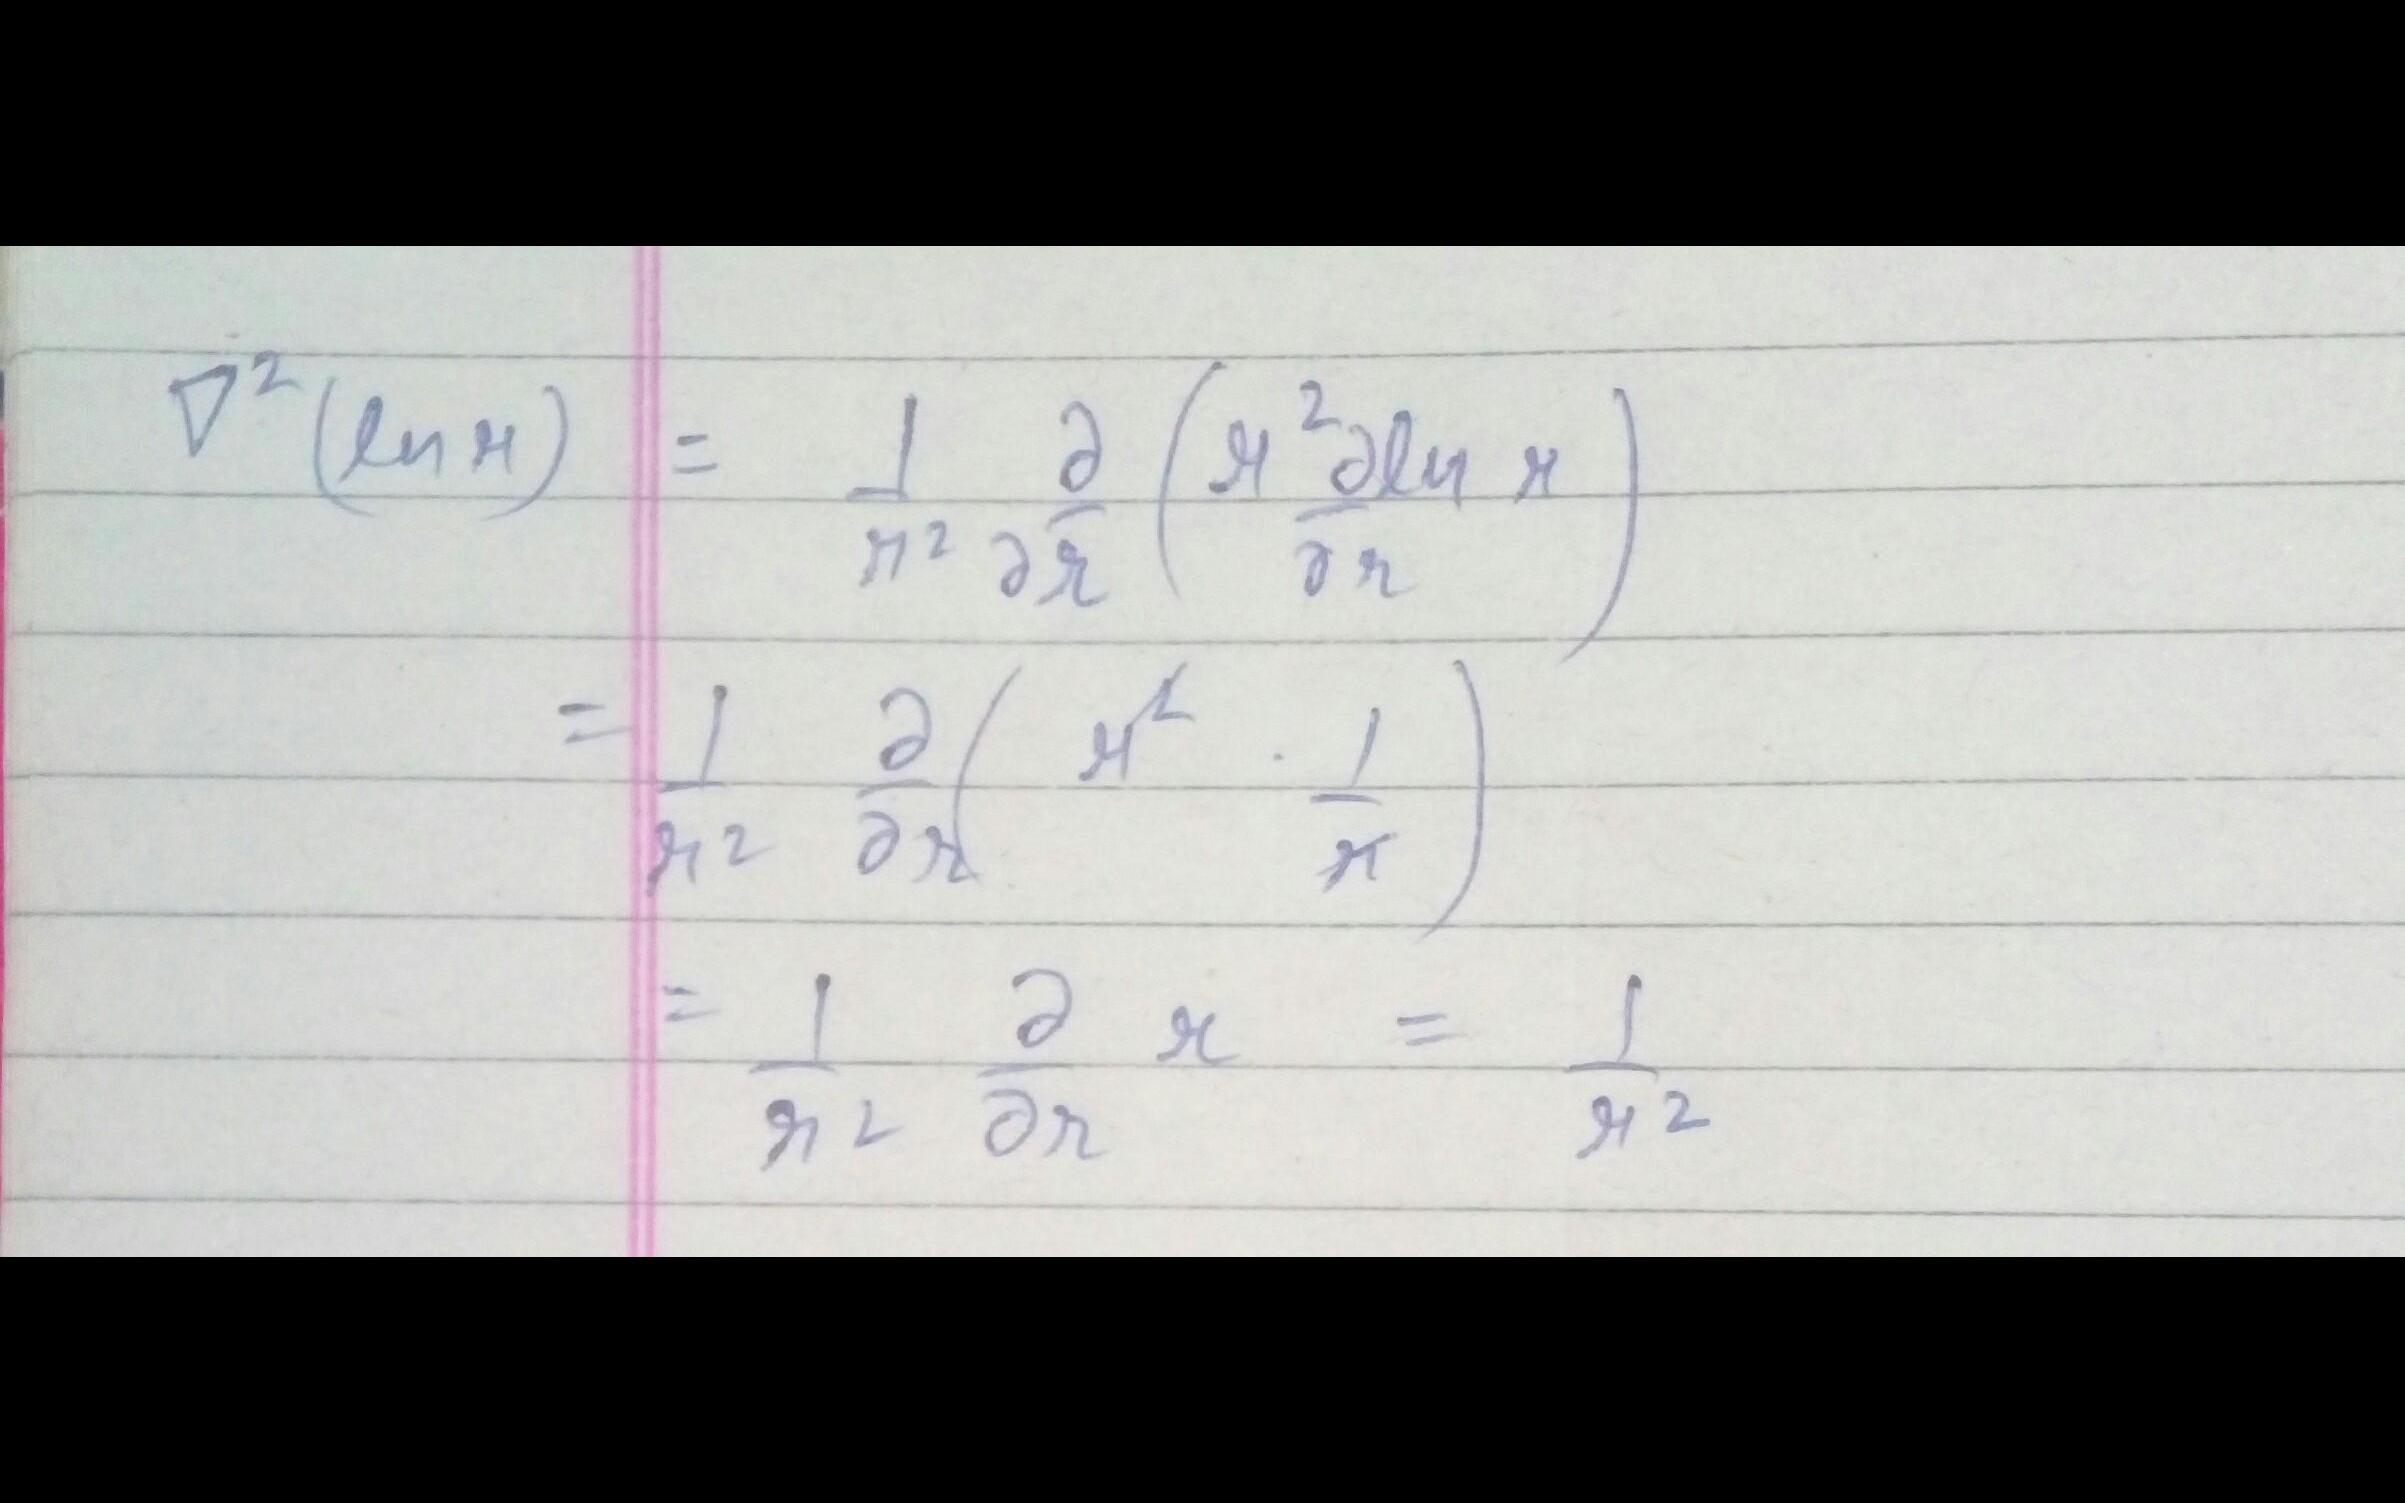 ∇²(ln r) = 1/r² ∂/∂r (r² ∂ln r/∂r)
= 1/r² ∂/∂r (r² · 1/r)
= 1/r² ∂/∂r r = 1/r²